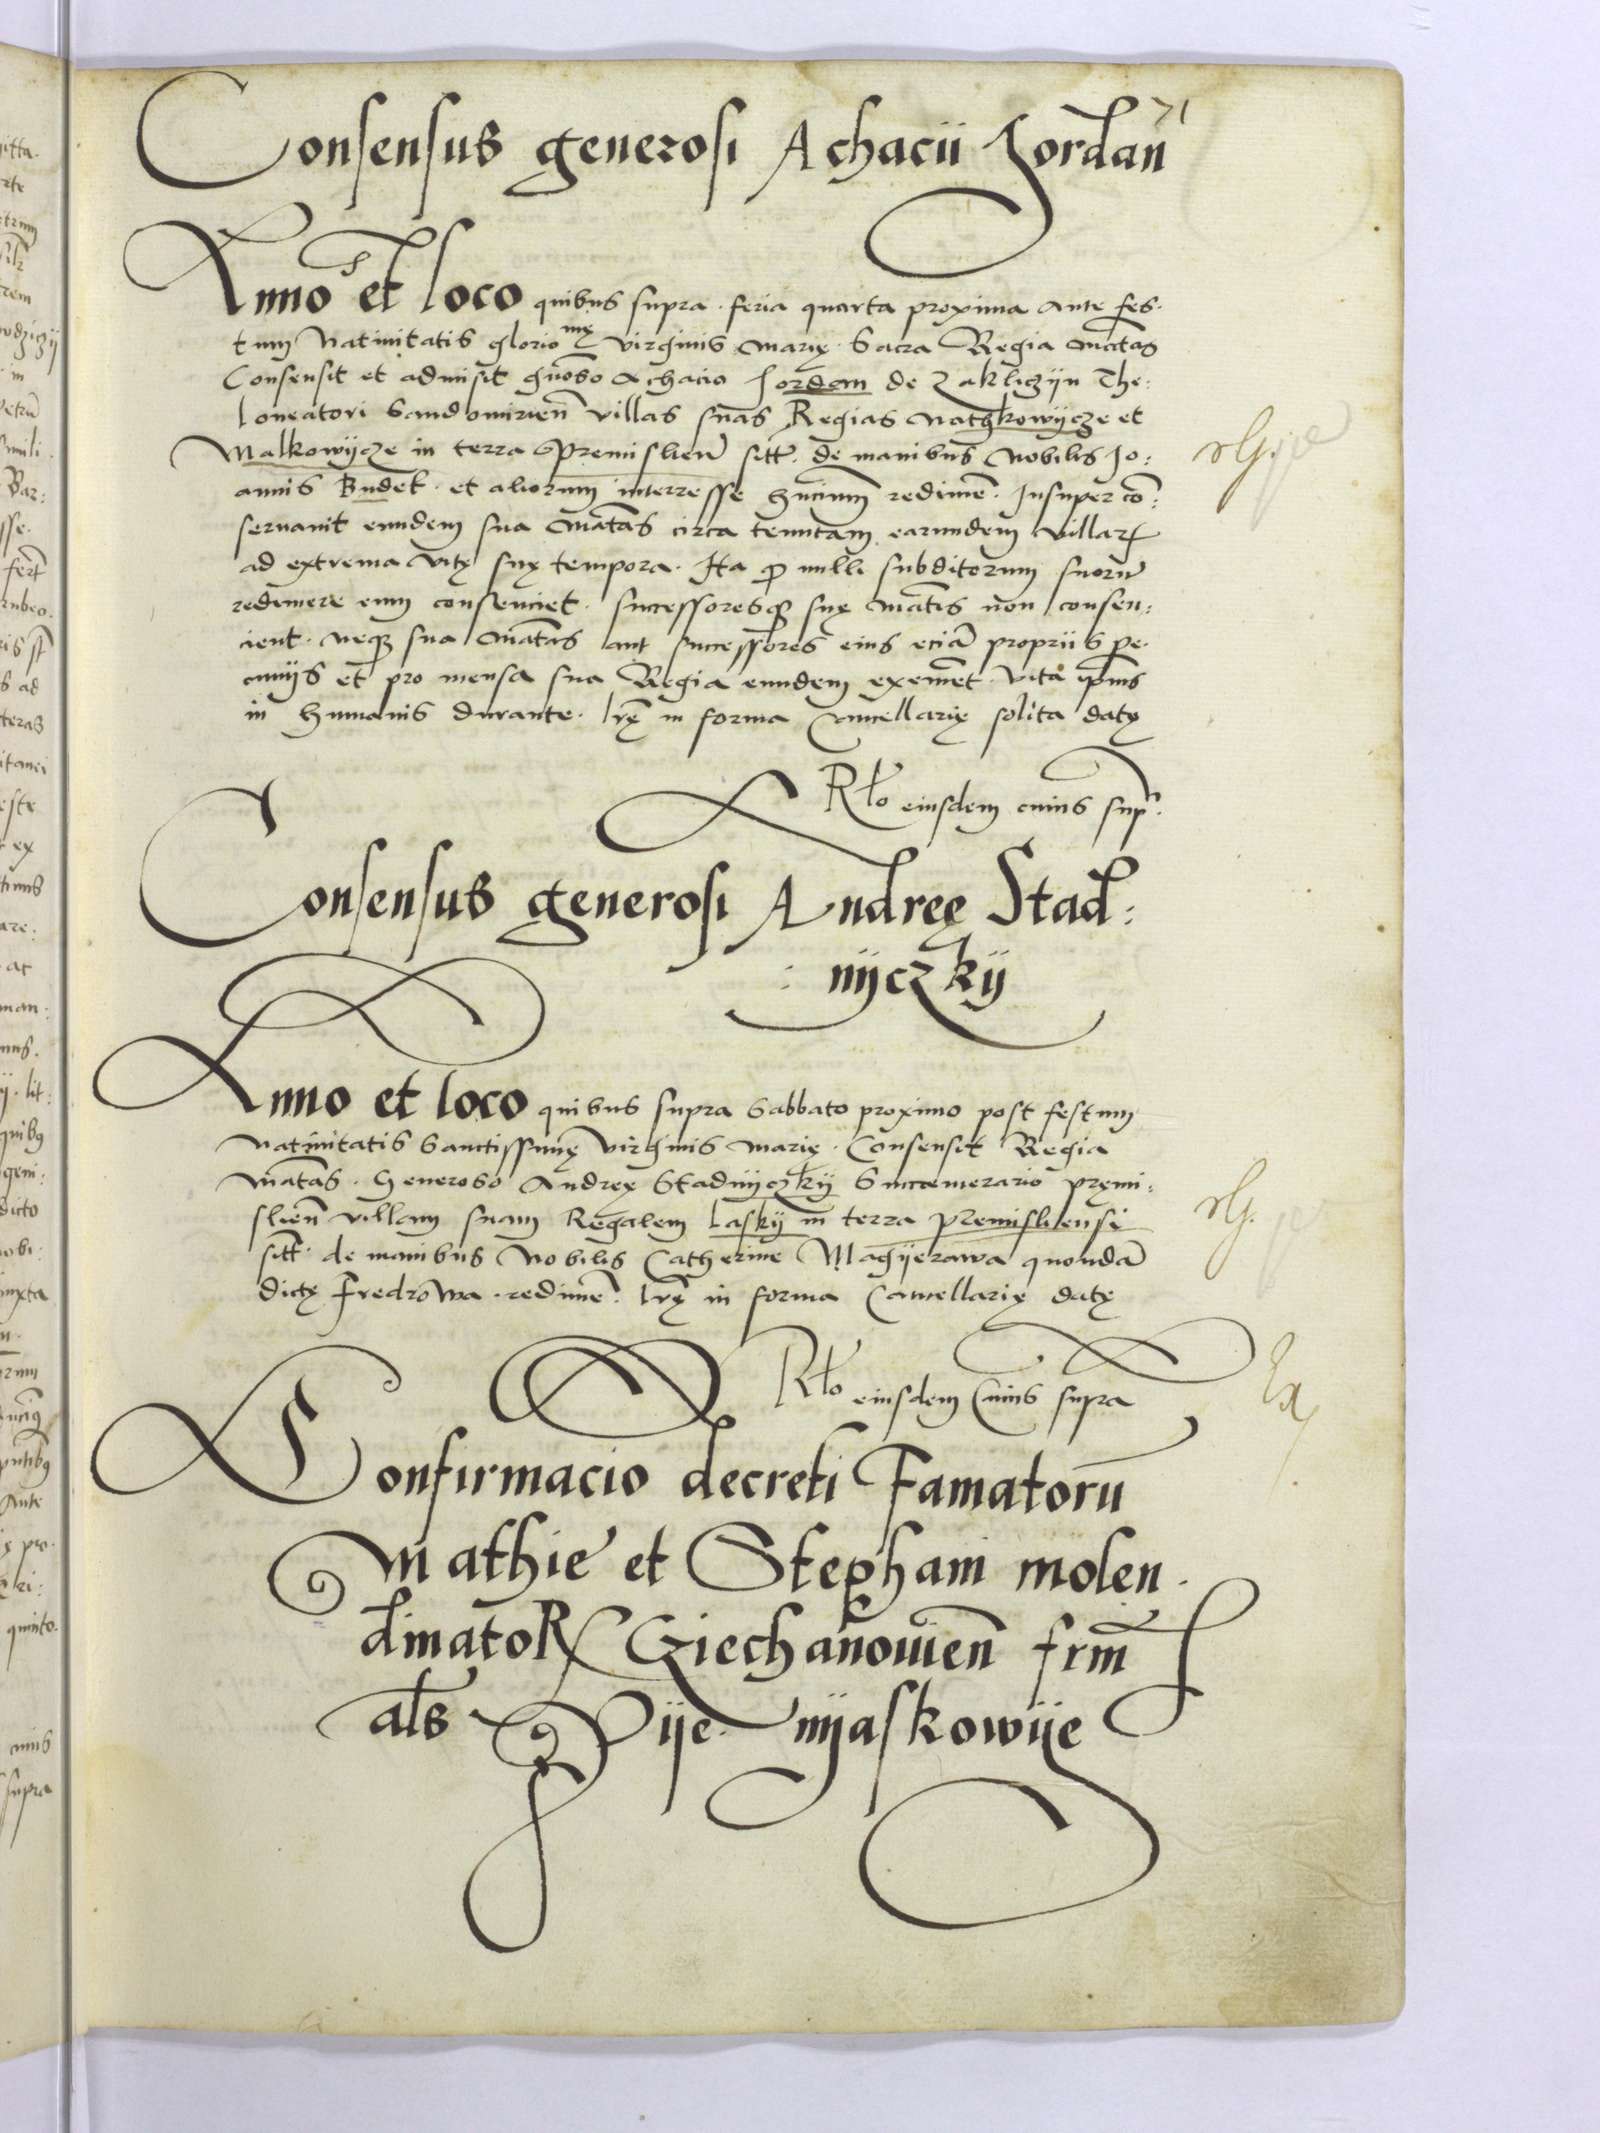 71
Consensus generosi Achacii Jordan
Anno et loco quibus supra · feria quarta proxima ante fes·
tum Natiuitatis glorio mę virginis marię · Sacra Regia mattas
Consensit et admisit gnoso Achacio Jordan de Zakliczijn The:
loneatori Sandomirien villas suas Regias Nathkowijcze et
Malkowijcze in terra Premislien sitt. de manibus Nobilis Jo:
annis Budek · et aliorum interresse hncium redimen. Insuper con:
seruauit eundem sua Mattas circa tenutam earundem villar
ad extrema vitę suę tempora. Ita q nulli subditorum suoru
redimere eum consenciet · successoresq suę Mattis non consen:
cient · neq sua Mattas aut successores eius eciā propriis pe·
cuniis et pro mensa sua Regia eundem exemet vita ipius
in humanis durante. Lrę in forma Cancellarię solita datę
Rłło eiusdem cuius supr.
Consensus generosi Andreę Stad:
: nijczkij
Anno et loco quibus supra Sabbato proximo post festum
Natiuitatis Sanctissimę virginis marię · Consensit Regia
Mattas · Generoso Andreę Stadnijczkij Succamerario pręmi:
slien villam suam Regalem Laskij in terra premisliensi
sitt. de manibus Nobilis Catherine Magijerawa quondā
dictę Fredrowa · redimen. Lrę in forma Cancellarię datę
Rłło eiusdem Cuius supra
Confirmacio decreti Famatorū
Mathie et Stephani molen·
dinatoR Cziechanouien frm
als Vije· nijaskowije